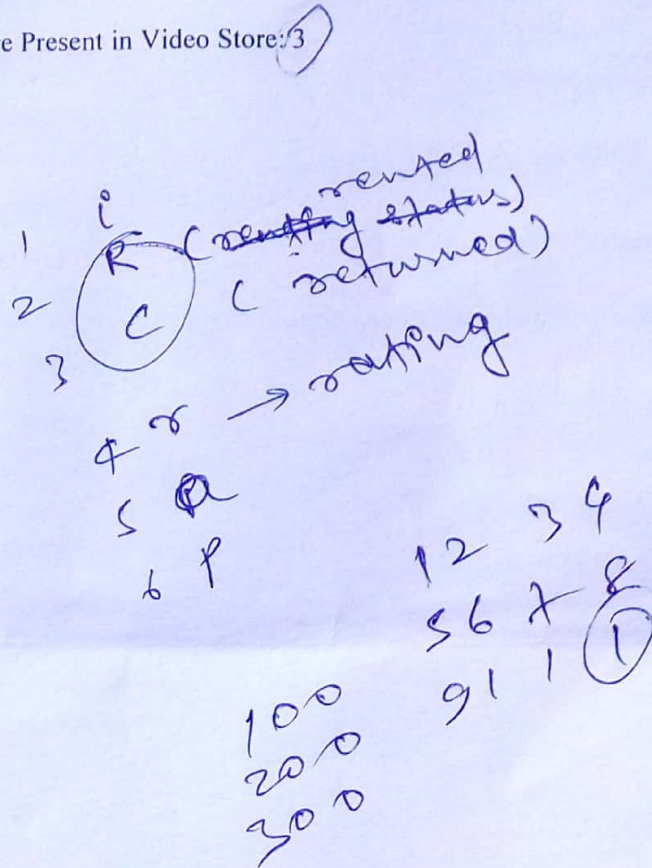 e Present in Video Store:/3
rented
1 i
R (renting status)
2 C ( returned)
3
4 r → rating
5 a
6 P
1 2 3 4
5 6 7 8
9 1 1 1
100
200
300